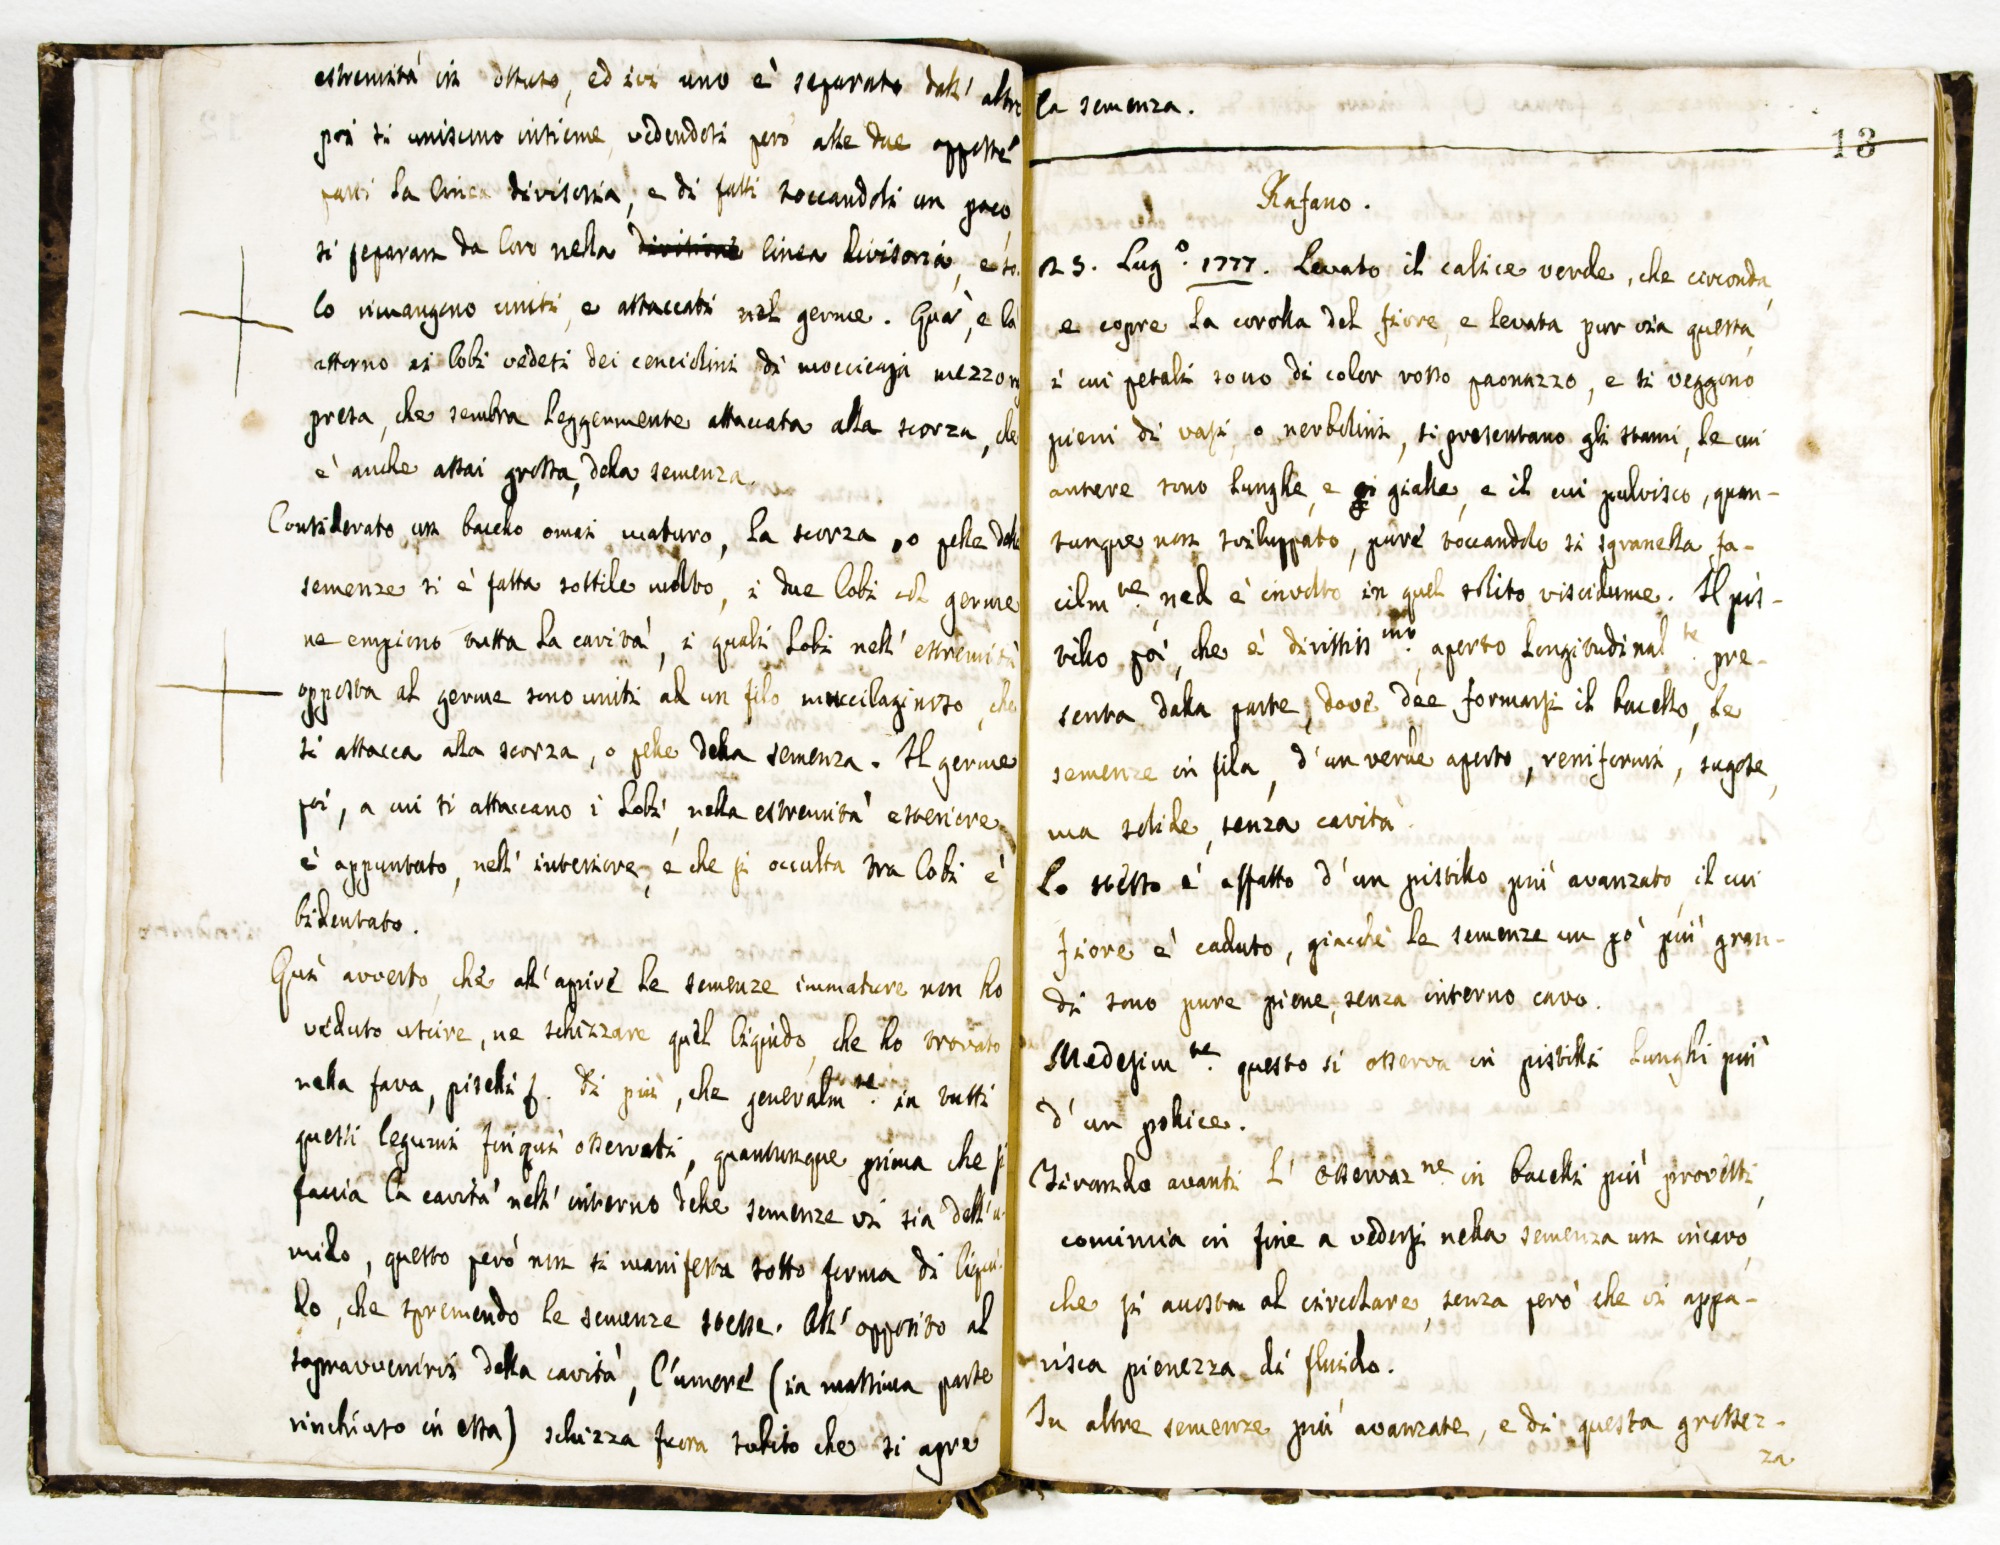 estremità in ottuso, ed ivi uno è separato dall' altro
poi si uniscono insieme, vedendosi però alle due opposte
parti la linea divisoria, e di fatti toccandoli un poco,
si separan da loro nella divisione linea divisoria, e so-
lo rimangono uniti, e attaccati nel germe. Quà, e là
attorno ai lobi vedesi dei cenciolini di moccicaja mezzo
presa, che sembra leggermente attaccata alla scorza, che
è anche assai grossa, della semenza.
Considerato un bacello omai maturo, la scorza, o pelle delle
semenze si è fatta sottile molto, i due lobi col germe
ne empiono tutta la cavità, i quali lobi nell' estremità
opposta al germe sono uniti ad un filo muccilaginoso, che
si attacca alla scorza, o pelle della semenza. Il germe
poi, a cui si attaccano i lobi, nella estremità esteriore
è appuntato, nell' interiore, e che si occulta tra lobi è
bidentato.
Quì avverto, che all' aprire le semenze immature non ho
veduto uscire, ne schizzare quel liquido, che ho trovato
nella fava, piselli f. Di più, che generalm.te in tutti
questi legumi finquì osservati, quantunque prima che si
faccia la cavità nell' interno delle semenze vi sia dell' u-
mido, questo però non si manifesta sotto forma di liqui-
do, che spremendo le semenze stesse. All' opposito al
sopravvenirvi della cavità, l' umore (in massima parte
rinchiuso in essa) schizza fuora subito che si apre
la semenza.
13
Rafano.
25. Lug.o 1777. Levato il calice verde, che circonda,
e copre la corolla del fiore, e levata pur via questa,
i cui petali sono di color rosso paonazzo, e si veggono
pieni di vasi, o nerbolini, si presentano gli stami, le cui
antere sono lunghe, e gi gialle, e il cui pulvisco, quan-
tunque non sviluppato, pure toccandolo si sgranella fa-
cilm.te, ned è involto in quel solito viscidume. Il pis-
tillo poi, che è dirittiss.mo, aperto longitudinal.te pre-
senta dalla parte, dove dee formarsi il bacello, le
semenze in fila, d' un verde aperto, reniformi, sugose,
ma solide, senza cavità.
Lo stesso è affatto d' un pistillo più avanzato, il cui
fiore è caduto, giacchè le semenze un pò più gran-
di sono pure piene, senza interno cavo.
Medesim.te questo si osserva in pistilli lunghi più
d' un pollice.
Tirando avanti l' osservaz.ne in bacelli più provetti,
comincia in fine a vedersi nella semenza un incavo,
che si accosta al circolare, senza però che vi appa-
risca pienezza di fluido.
In altre semenze più avanzate, e di questa grossez-
za